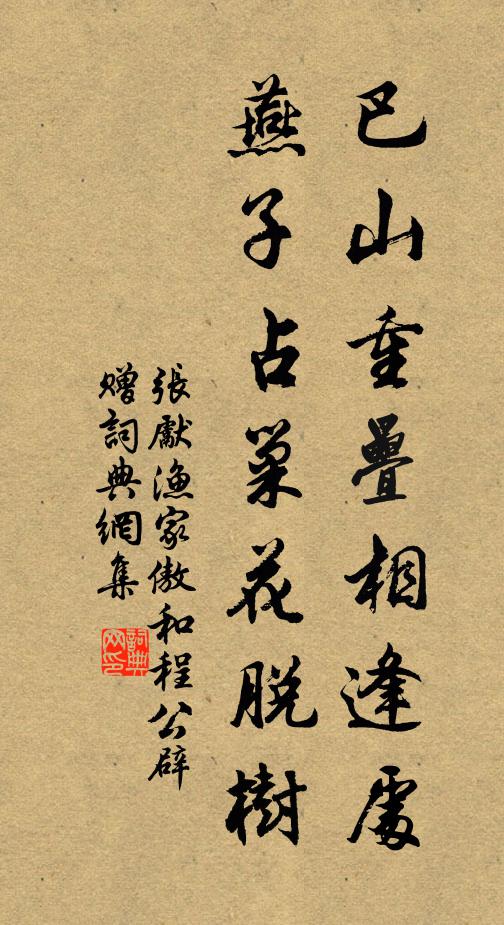 巴山重疊相逢處
燕子占巢花脫樹
張獻漁家傲和程公辟
贈詞典網集
詞典網印